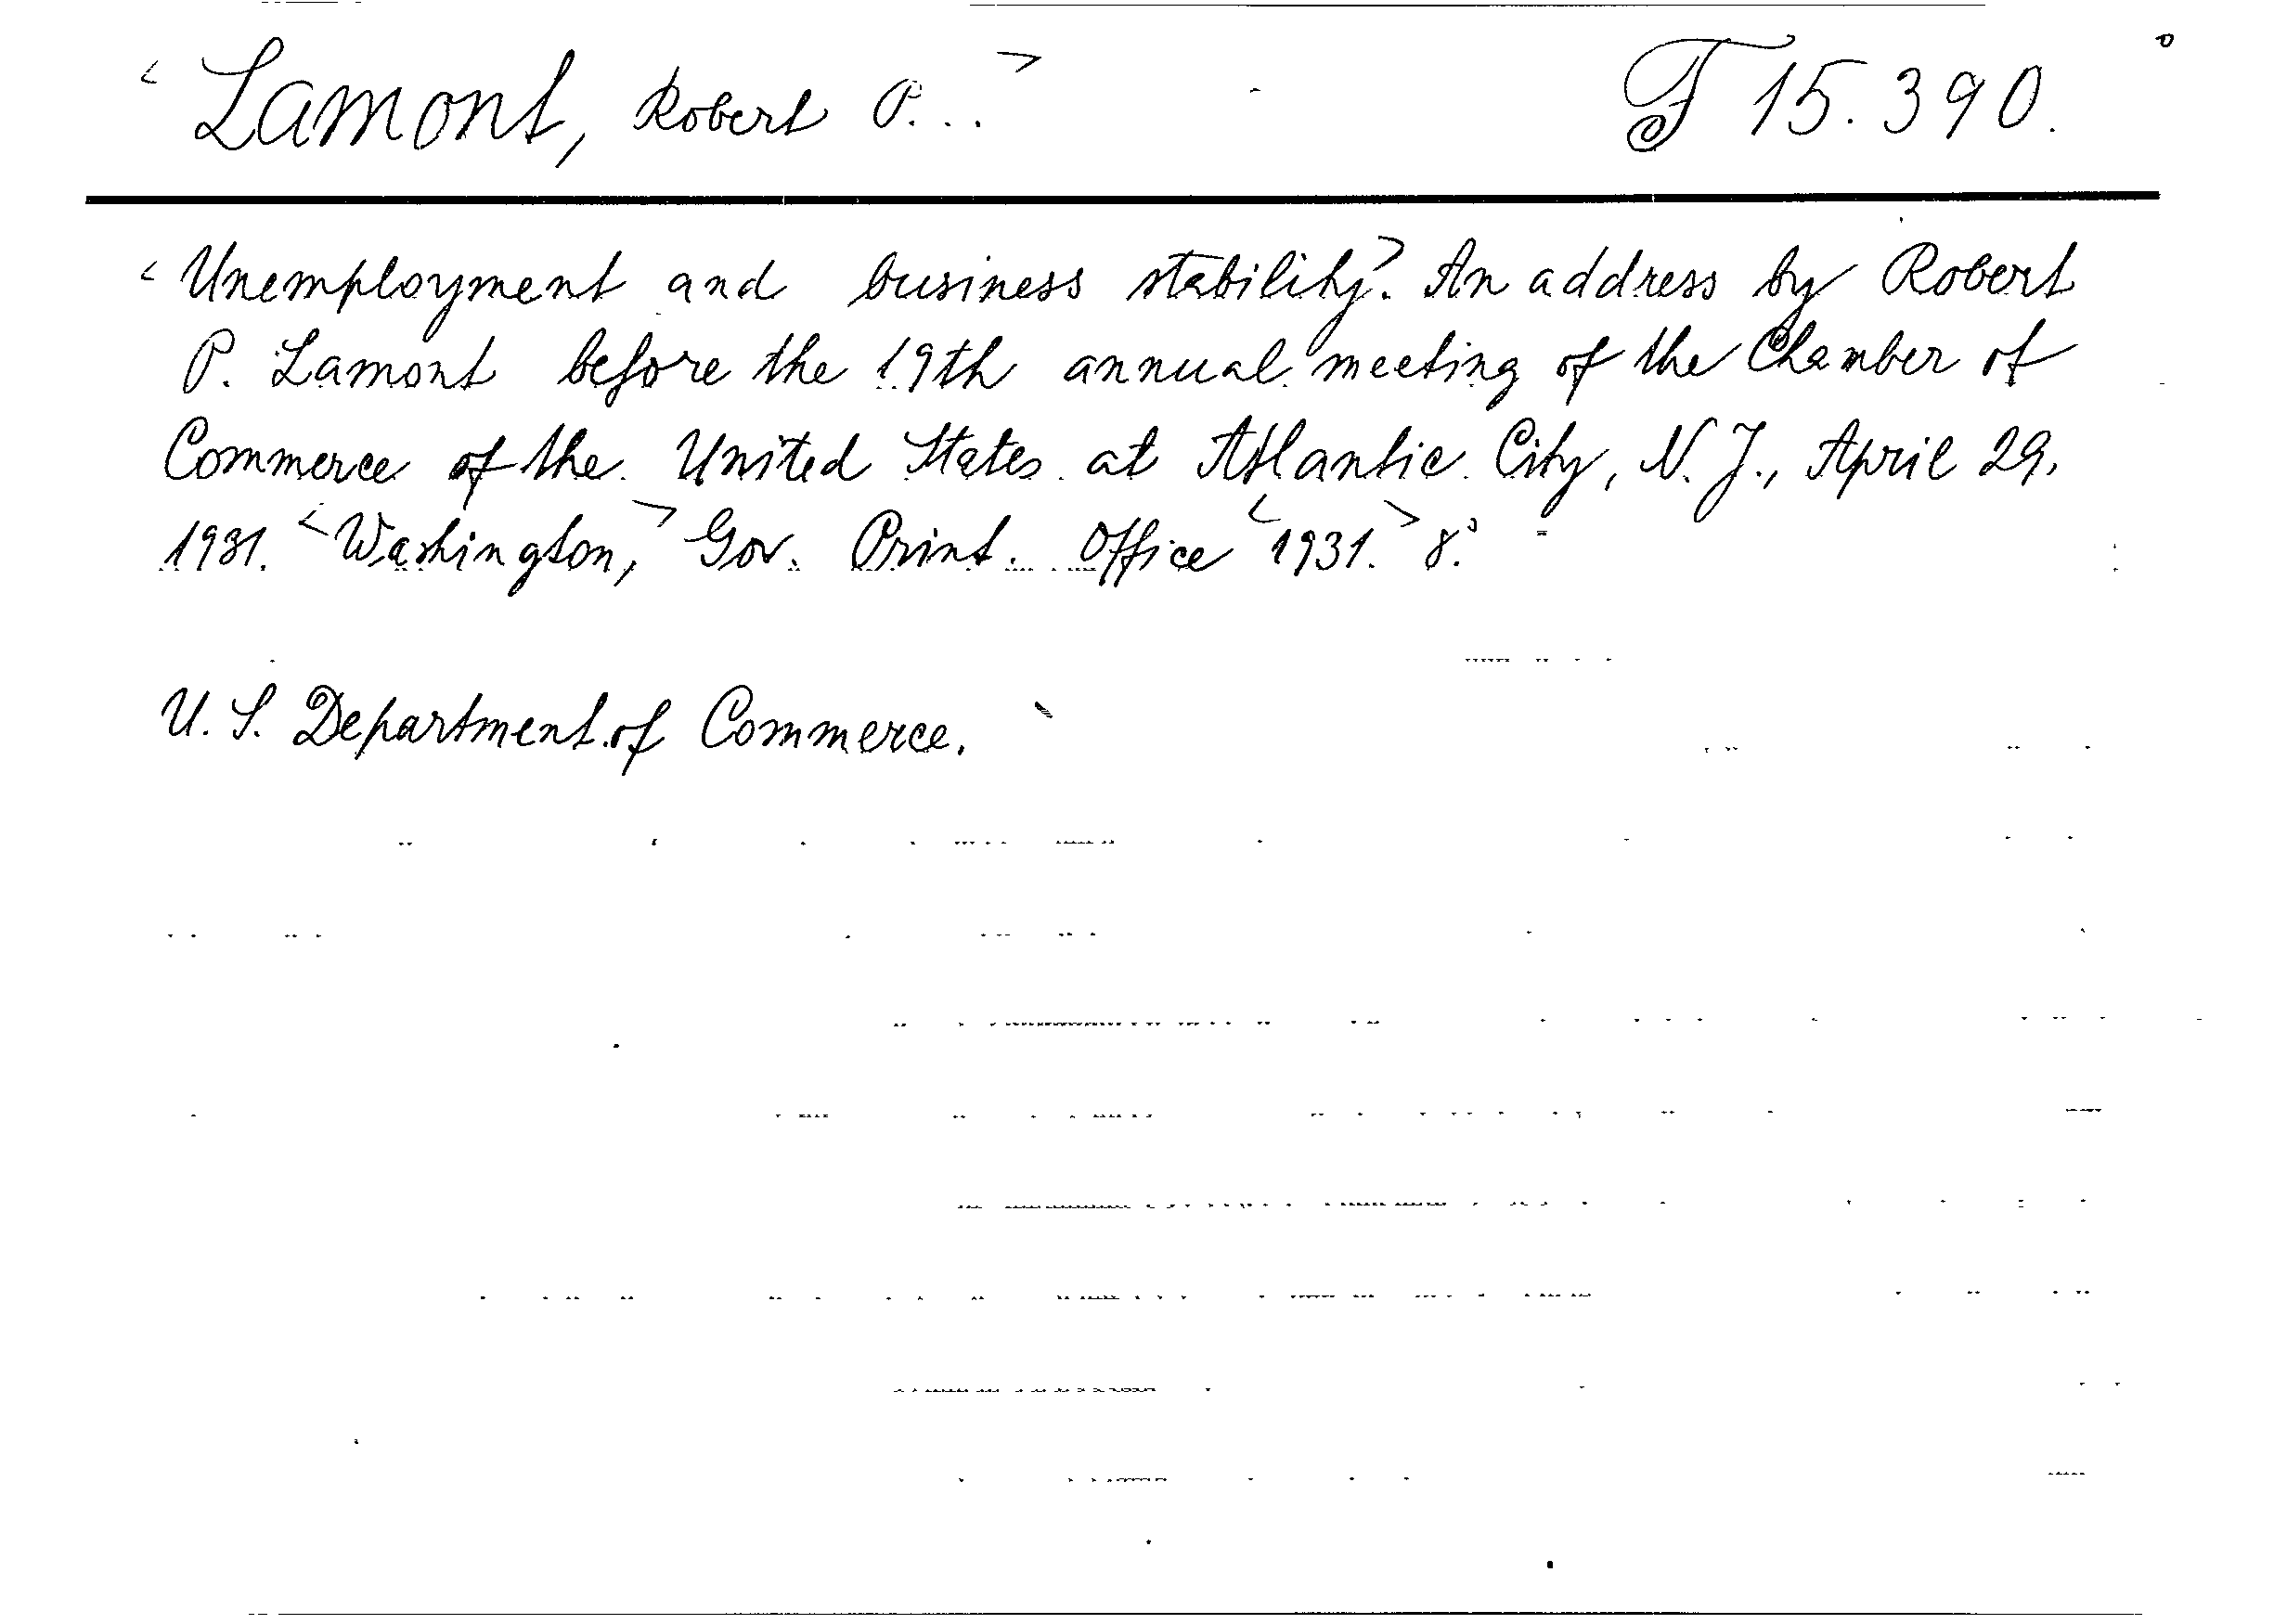 < Lamont, Robert P... > F 15.390.
< Unemployment and business stability>. An address by Robert
P. Lamont before the 19th annual meeting of the Chamber of
Commerce of the United States at Atlantic City, N. J., April 29.
1931. <Washington,> Gov. Print. Office <1931.> 8°.
U. S. Department of Commerce.